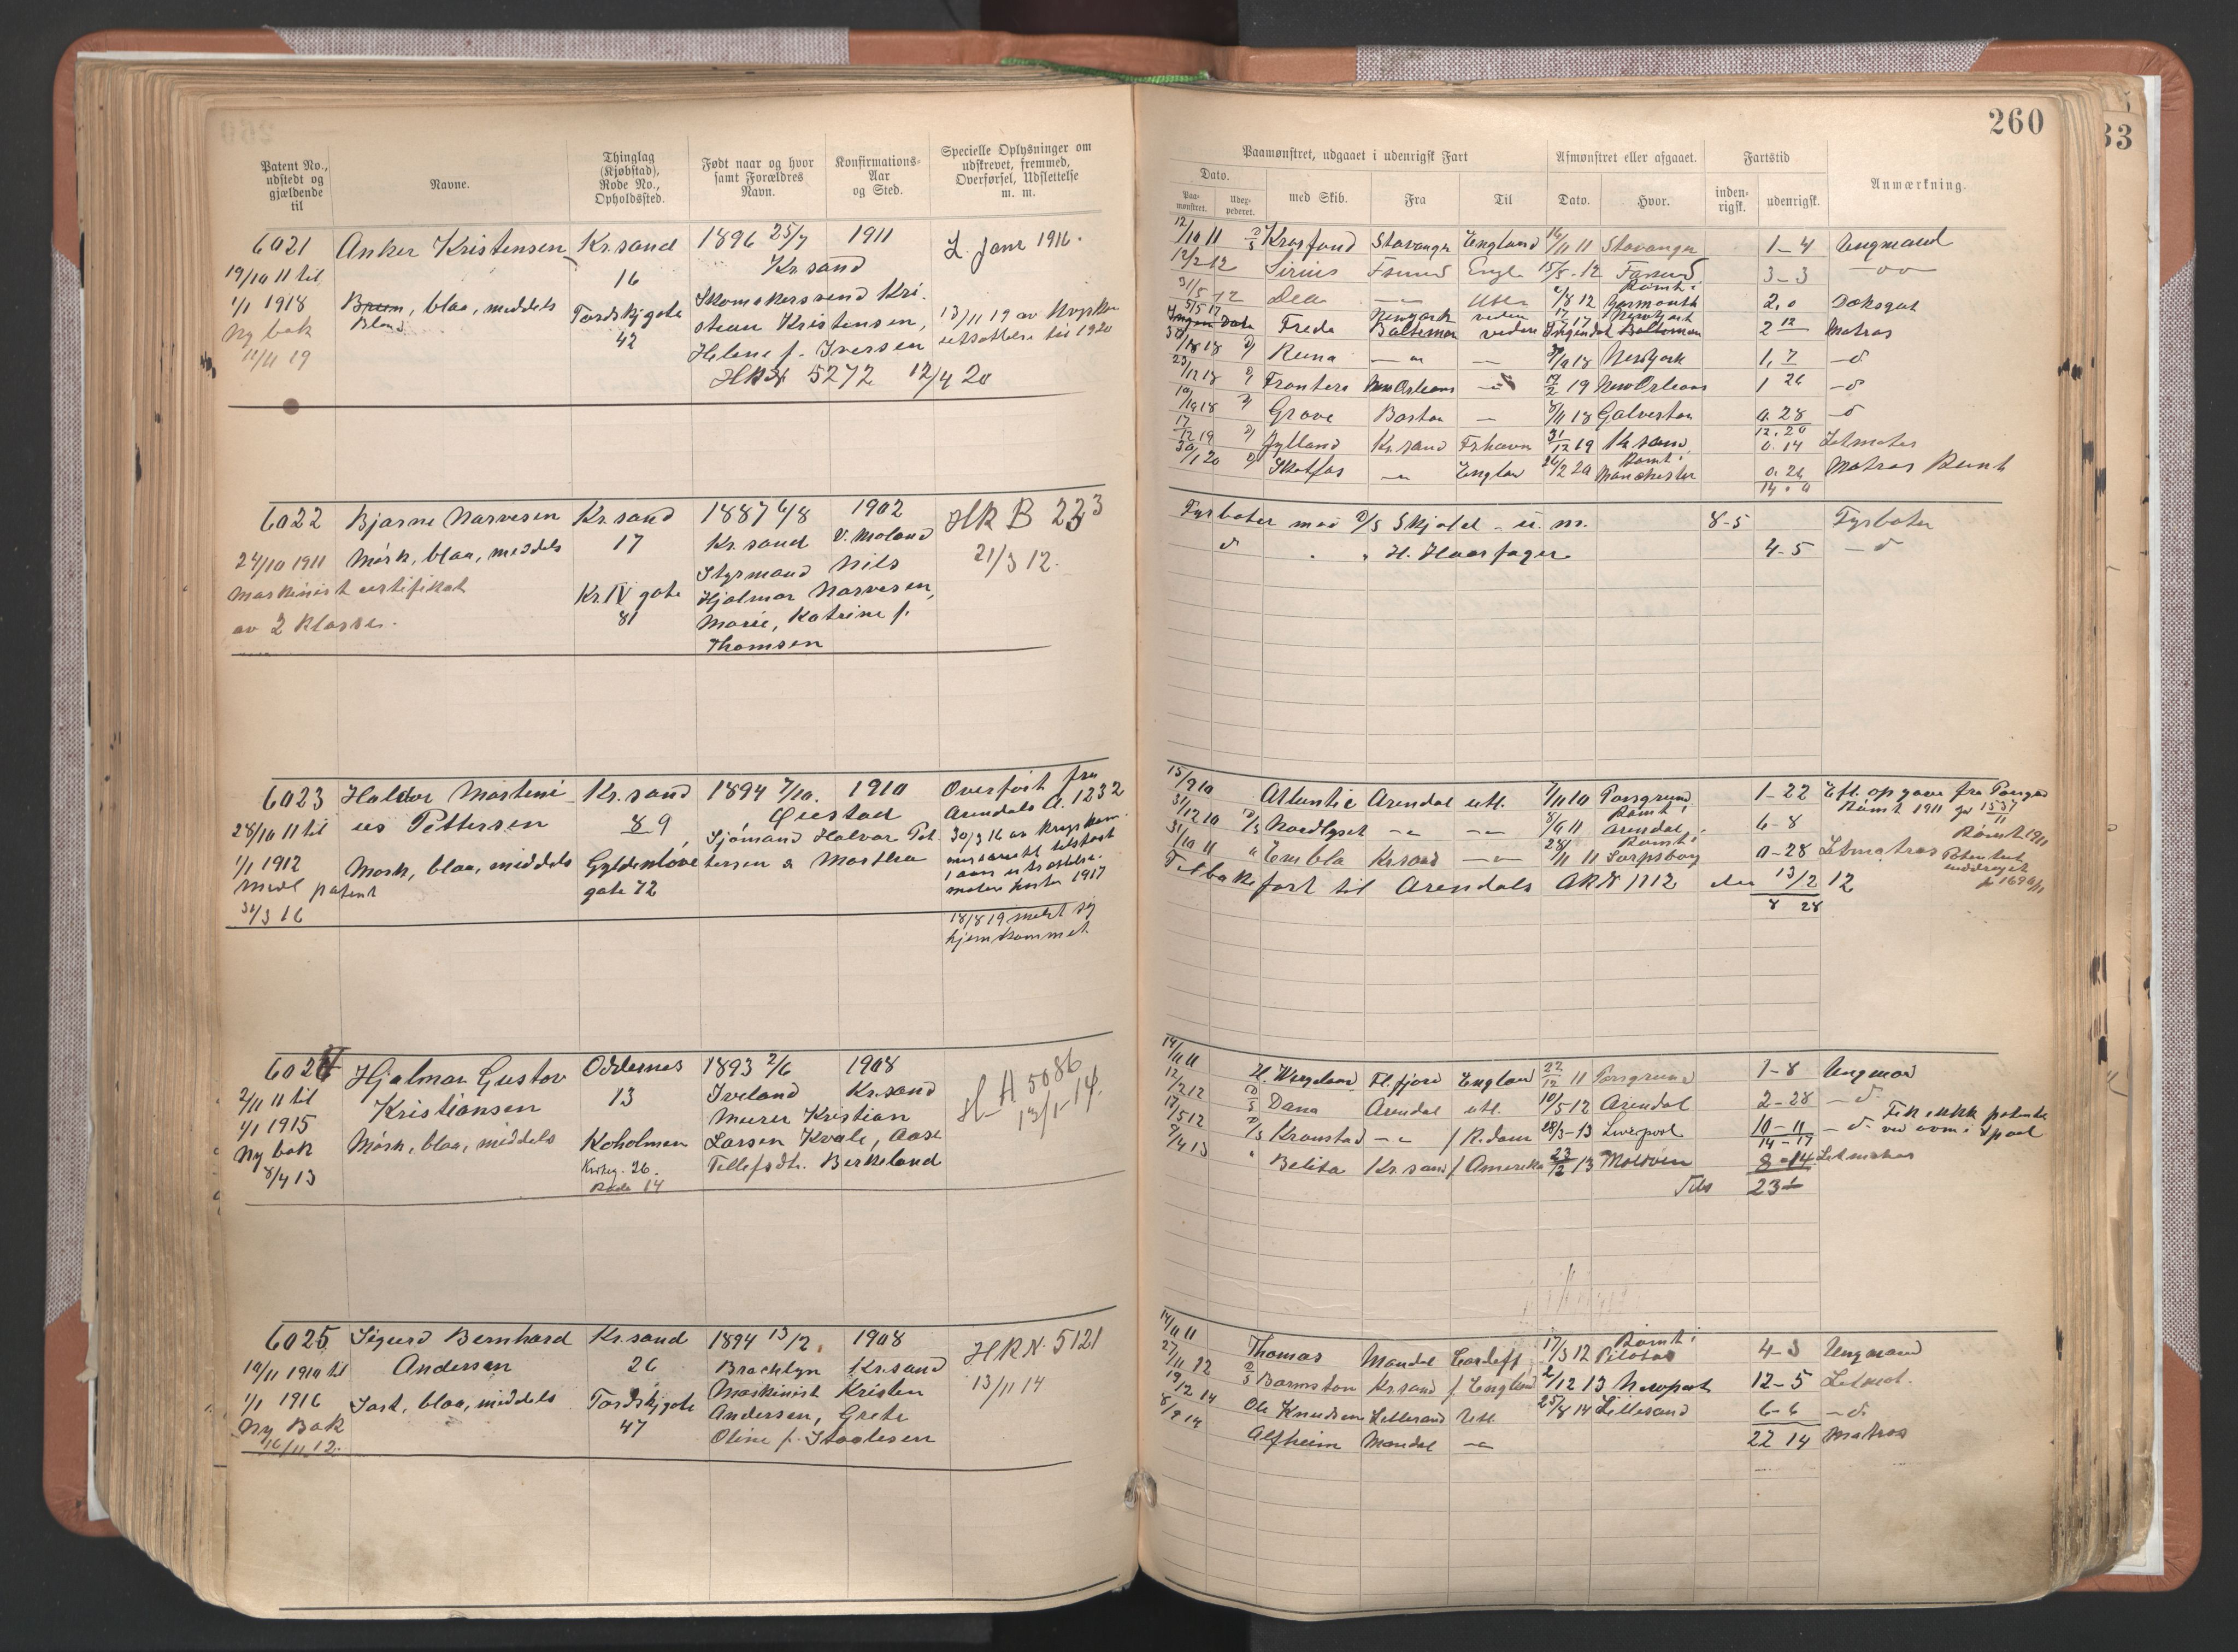 260
Patent No., udstedt og gjældende til
Navne.
Thinglag (Kjøbstad), Rode No., Opholdssted.
Født naar og hvor samt Forældres Navn.
Konfirmations-Aar og Sted.
Specielle Oplysninger om udskrevet, fremmed, Overførsel, Udslettelse m. m.
Paamønstret, udgaaet i udenrigsk Fart
Afmønstret eller afgaaet.
Fartstid
Anmærkning.
Dato.
Paa-mønstret.
Udex-pederet.
med Skib.
Fra
Til
Dato.
Hvor.
inden-rigsk.
udenrigsk.
6021 Anker Kristensen Kr.sand 1896 25/7 1911 L. Janr 1916.
19/10 11 til 16 Kr.sand
1/1 1918 Brun, blaa, middels Tordskjgate Skomakersvend Kri-
Ny bok Blond 42 stian Kristensen, 13/11 19 av
12/11 19 Helene f. Iversen utsættelse til 1920
HR N 5272 12/4 20
12/10 11 D/S Krosfond Stavanger England 14/11 11 Stavanger 1-4 Ungmand
12/2 12 Sirius Fsund Engl 15/5-12 Farsund 3-3 -oo-
31/5-12 Dea Utl. 6/8 12 Rømt i Yarmouth 2,0 Dæksgut
Ingen Dato Freda Newyork Baltimor videre Ingen dat Newyork Baltimore 2 12 Matros
30/8 18 Reina 7/9 18 Newyork 1,7 -d
23/12 18 Frontera New Orleans 19/2 19 New Orleans 1 26 -d
10/10 18 Grove Boston 8/11 18 Galveston 0.28 -d
12.20
17/12 19 Jylland Kr.sand Frhavn 31/12 19 Kr.sand 0.14 Letmatros
30/1 20 Skotfos England 26/2 20 Rømt i Manchester 0.26 Matros Rømt
14.0
6022 Bjarne Narvesen Kr.sand 1887 6/8 1902 HR B 223
24/10 1911 Mørk, blaa, middels 17 Kr.sand V. Moland 21/3 12.
Maskinist certifikat Styrmand Nils
av 2 Klasse. Kr. IV gate Hjalmar Narvesen,
81 Marie, Katrine f.
Thomsen
Fyrbøter med D/S Skjold u. m. 8-5 Fyrbøter
d " H. Haarfager 4-5 -d
6023 Haldor Marteni- Kr.sand 1894 7/10. 1910 Overført fra
28/10 11 til us Pettersen 89 Øiestad Arendals A. 1232
1/1 1912 Mørk, blaa, middels Gyldenløve Sjømand Halvor Pet- 30/3 16 av
midl patent gate 72 tersen & Marthea
31/3 16 1 aars utsættelse.
møter høsten 1917
18/8 19 meldt sig
hjemkommet
15/9 10 Atlantic Arendal utl. 7/11 10 Porsgrund 1-22 Eft. opgave fra Porsgr.
31/12 10 D/S Nordlyset 8/6 11 Rømt i Arendal 6-8 Rømt 1911
31/10 11 " Embla Kr.sand 28/11 11 Rømt i Sarpsborg 0-28 Letmatros Patentet inddraget
Tilbakeført til Arendals AR N 1112 den 13/2 12
8 28
6024 Hjalmar Gustav Oddernes 1893 2/6 1908 H A 5086
2/11 11 til Kristiansen 13 Iveland Kr.sand 13/1-14.
1/1 1915 Murer Kristian
Ny bok Mørk, blaa, middels Koholmen Larsen Kvale, Aase
8/4 13 26. Tellefsdt. Berkeland
Rode 14
14/11 11 H. Wergeland Fl.fjord England 22/12 11 Porsgrund 1-8 Ungmand
12/2 12 D/S Dana Arendal utl. 10/5-12 Arendal 2-28 -d-
17/5 12 D/S Kronstad / R.dam 28/3-13 Liverpool 10-11 -d- Fik ikke patentet ved avm. i Lpool
14-17
9/4 13 " Belita Kr.sand / Amerika 23/12 13 8-14 Letmatros
Tils 23-1
6025 Sigurd Bernhard Kr.sand 1894 13/12. 1908 HR N. 5121
14/11 1911 til Andersen 26 Brooklyn Kr.sand 13/11 14
1/1 1916 Sort, blaa, middels Tordskjgate Maskinist Kristen
Ny Bok 47 Andersen, Grete
16/11 12. Oline f. Staalesen
14/11 11 Thomas Mandal Cardiff 17/3 12 Rømt i Pilotas 4-3 Ungmand
27/11 12 D/S Barmston Kr.sand / England 2/12 13 Newport 12-5 Letmat.
19/2 14 Ole Knudsen Lillesand Utl. 25/8 14 Lillesand 6-6 -d-
8/9 14 Alfheim Mandal 22 14 Matros